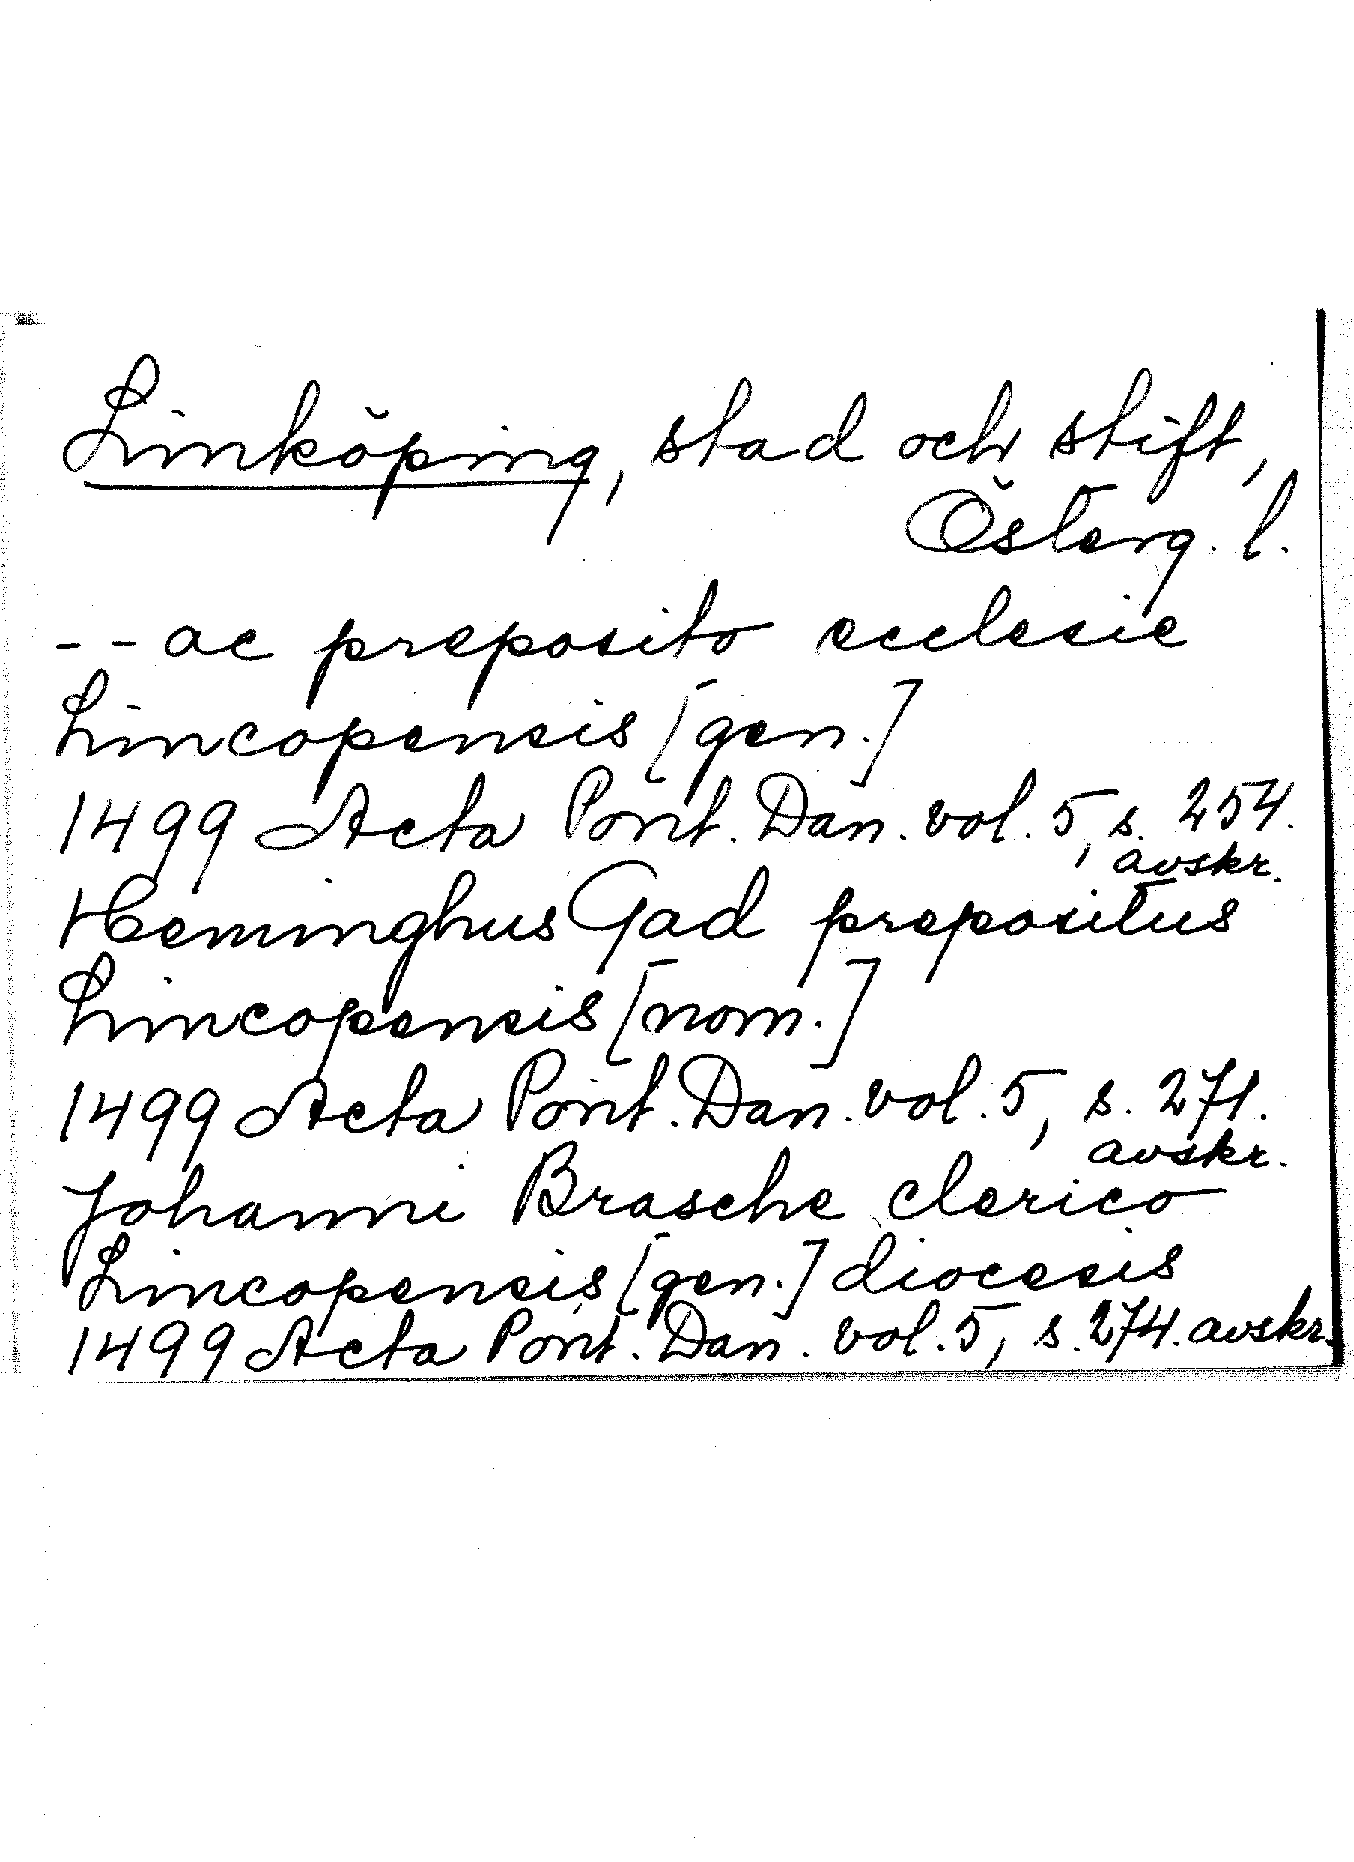 Linköping, stad och stift,
Österg. l.
-- ac preposito ecclesie
Lincopensis [gen.]
1499 Acta Pont. Dan. vol. 5, s. 254.
avskr.
Heminghus Gad prepositus
Lincopensis [nom.]
1499 Acta Pont. Dan. vol. 5, s. 271.
avskr.
Johanni Brasche clerico
Lincopensis [gen.] diocesis
1499 Acta Pont. Dan. vol. 5, s. 274. avskr.